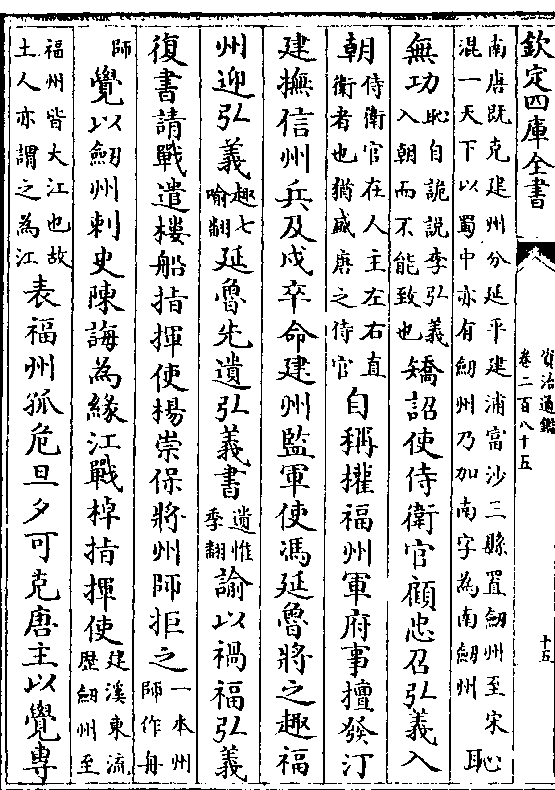 欽定四庫全書
資治通鑑
卷二百八十五
十五
南唐既克建州分延平建浦富沙三縣置劒州至宋
混一天下以蜀中亦有劒州乃加南字為南劒州
恥
無功
恥自詭說李弘義
入朝而不能致也
矯詔使侍衛官顧忠召弘義入
朝
侍衛官在人主左右直
衛者也猶盛唐之侍官
自稱權福州軍府事擅發汀
建撫信州兵及戍卒命建州監軍使馮延魯將之趣福
州迎弘義
趣七
喻翻
延魯先遺弘義書
遺惟
季翻
諭以禍福弘義
復書請戰遣樓船指揮使楊崇保將州師拒之
一本州
師作舟
師
覺以劒州刺史陳誨為緣江戰棹指揮使
建溪東流
歷劒州至
福州皆大江也故
土人亦謂之為江
表福州孤危旦夕可克唐主以覺專